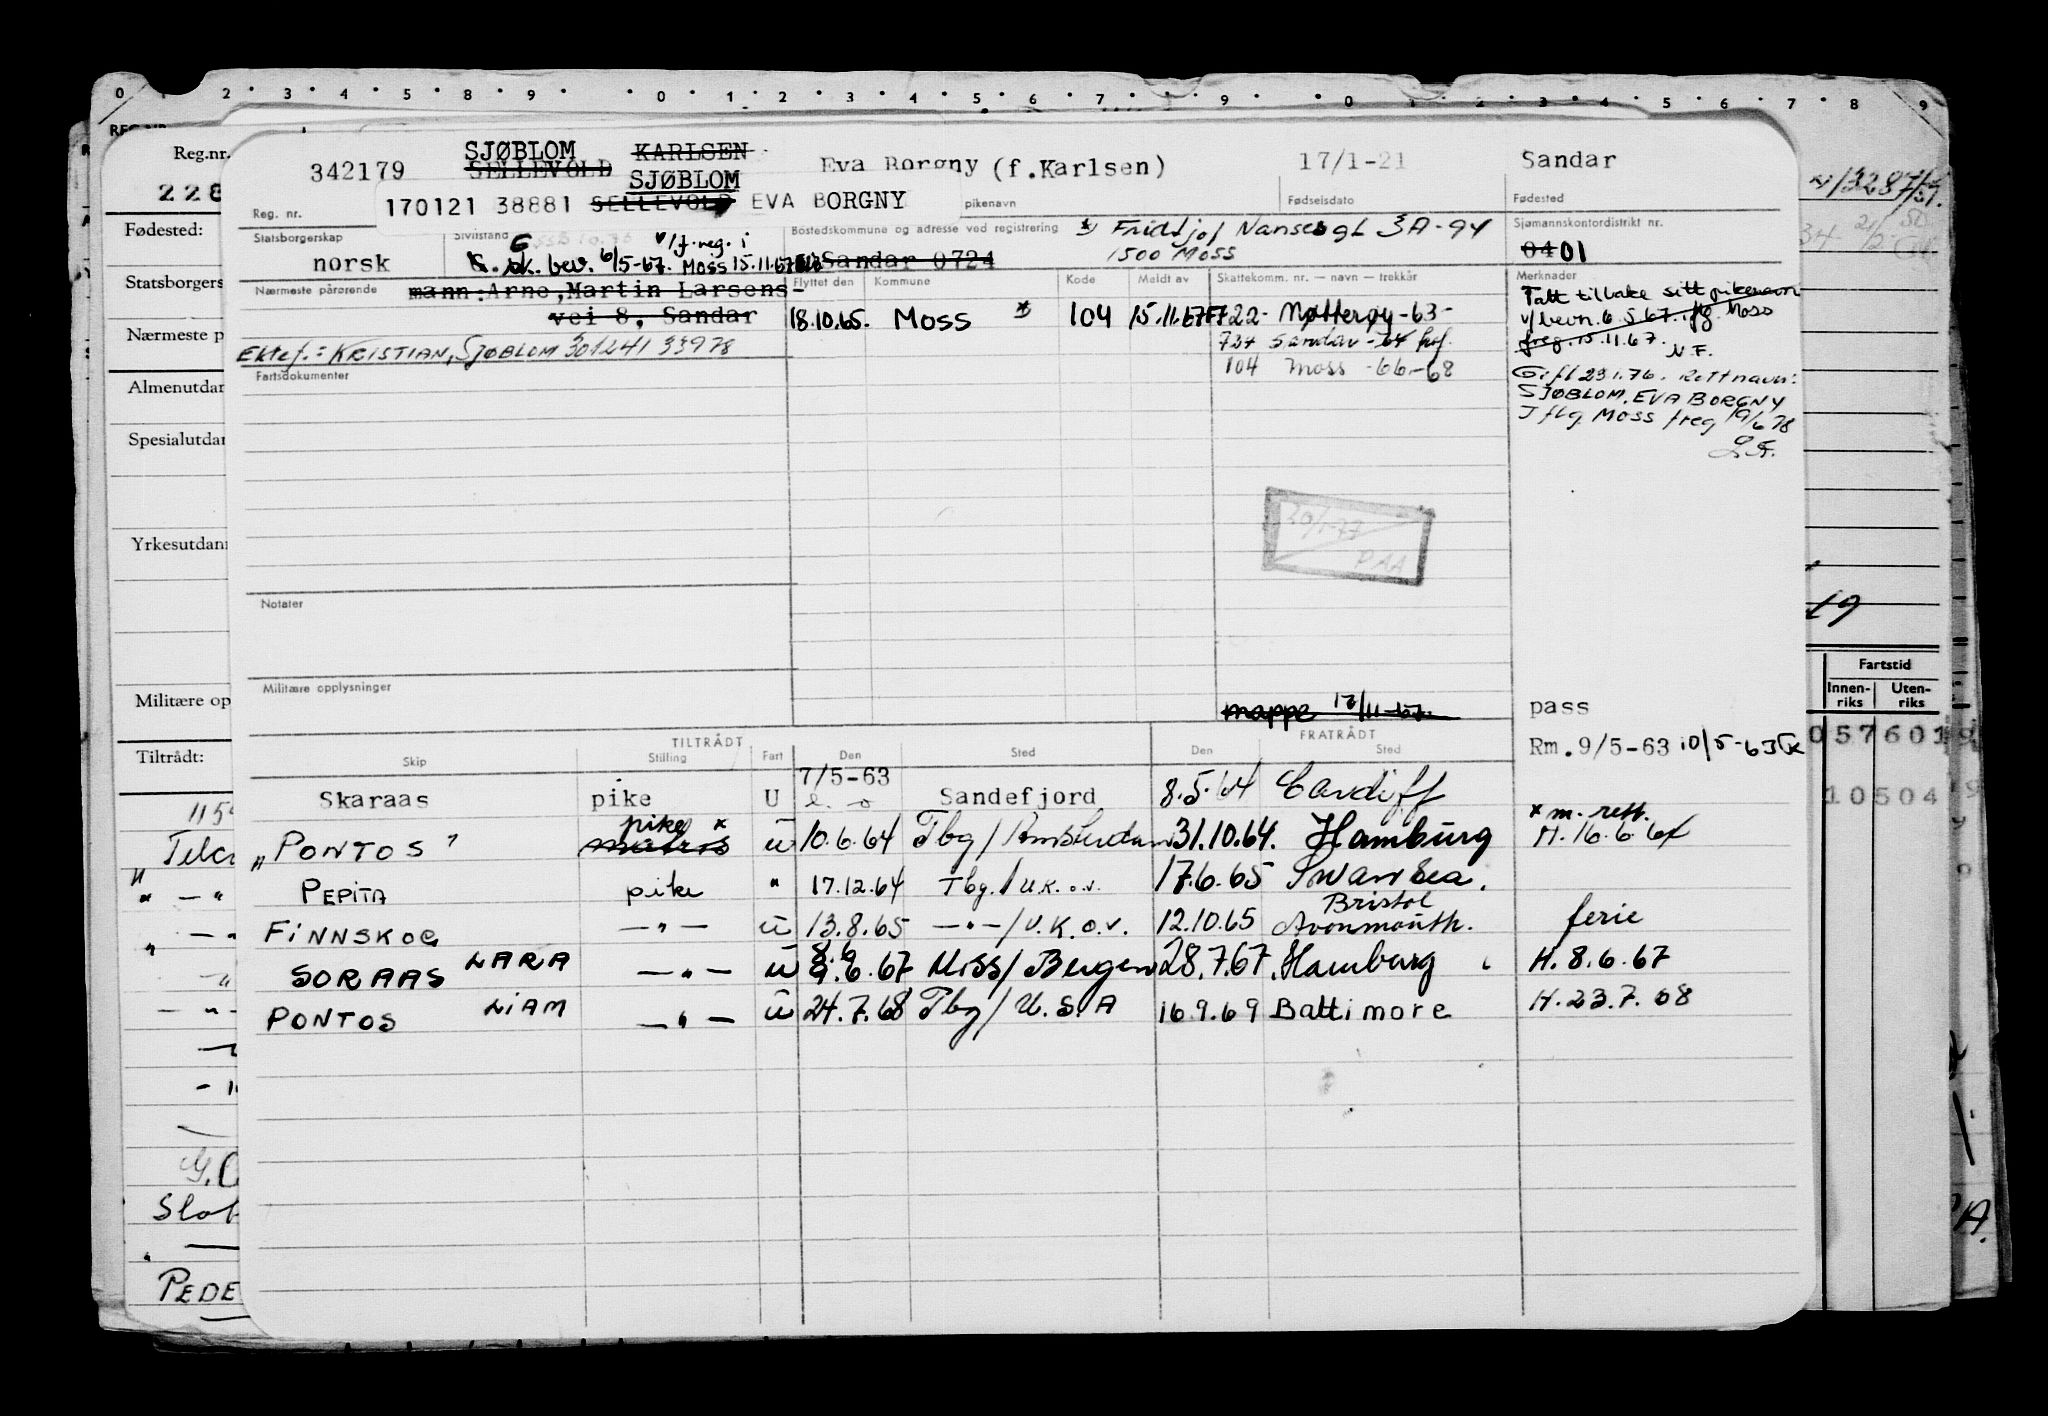 0 1 2 3 4 5 8 9 0 1 2 3 4 5 6 7 8 9 0 1 2 3 4 5 6 7 8 9
Reg.nr.
228
Fødested:
Statsborgers
Nærmeste p
Almenutdan
Spesialutdan
Yrkesutdann
Militære op
Tiltrådt:
342179 SJØBLOM KARLSEN Eva Borgny (f.Karlsen) 17/1-21 Sandar
SELLEVOLD SJØBLOM
170121 38881 SELLEVOLD EVA BORGNY
Reg. nr. pikenavn Fødselsdato Fødested
Statsborgerskap Sivilstand Bostedskommune og adresse ved registrering Sjømannskontordistrikt nr.
Fridtjof Nansens gt 3A-94
1500 Moss
norsk G. sk. bev. 6/5-67. v/f.reg. i Moss 15.11.67 Sandar 0724 04 01
Nærmeste pårørende Flyttet den Kommune Kode Meldt av Skattekomm. nr. — navn — trekkår Merknader
mann: Arne, Martin Larsens-
vei 8, Sandar
18.10.65. Moss * 104 15.11.67FF 722- Nøtterøy -63-
724 Sandar -64
104 Moss -66-68
Ektef.: KRISTIAN, SJØBLOM 301241 33978
Tatt tilbake sitt pikenavn
v/bevn. 6 5 67. ifg. Moss
freg. 15.11.67.
N.F.
Gift 23 1.76. Rett navn:
SJØBLOM, EVA BORGNY
Iflg Moss freg 19/6 78
Fartsdokumenter
20/1-77
PAA
Notater
Militære opplysninger
mappe 17/11-67.
pass
Rm. 9/5-63 10/5-63
TILTRÅDT FRATRÅDT
Skip Stilling Fart Den Sted Den Sted
Skaraas pike U 7/5-63 Sandefjord 8.5.64 Cardiff
"PONTOS" pike * matros u 10.6.64 Tbg/Amsterdam 31.10.64. Hamburg * m. rett. H. 16.6.64
PEPITA pike " 17.12.64 Tbg./U.K. o.v. 17.6.65 Swansea.
FINNSKOG —"— u 13.8.65 —"—/U.K. o.v. 12.10.65 Bristol Avonmouth. ferie
SORAAS LARA —"— u 9.6.67 Miss/Bergen 28.7.67. Hamburg H. 8.6.67
PONTOS LIAM —"— u 24.7.68 Tbg/U.S.A 16.9.69 Baltimore H. 23.7.68
Fartstid
Innen-riks Uten-riks
057601
10504
19
PEDE